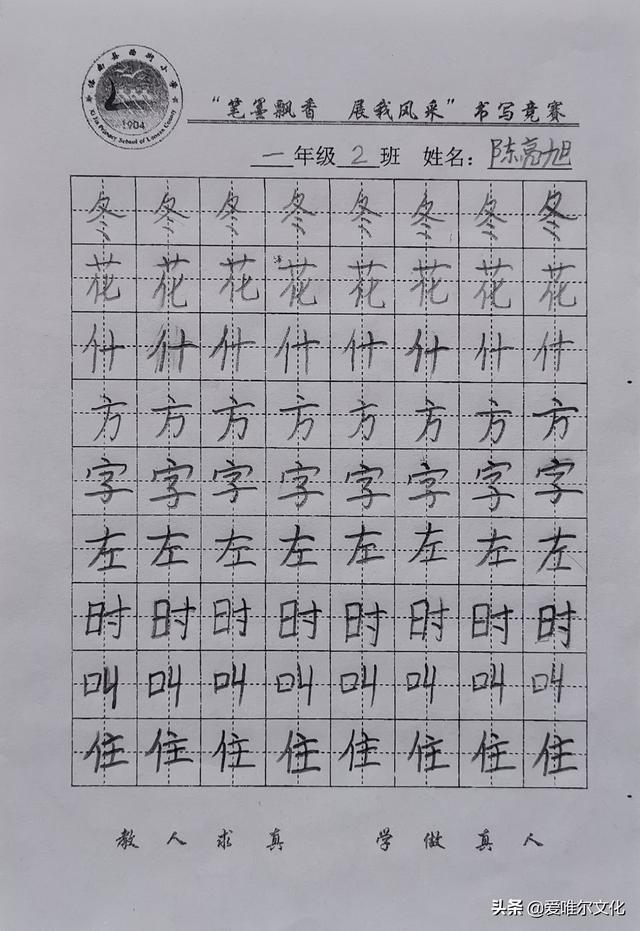 1904
“笔墨飘香 展我风采”书写竞赛
一年级2班 姓名：陈亮旭
冬冬冬冬冬冬冬冬
花花花花花花花花
什什什什什什什什
方方方方方方方方
字字字字字字字字
左左左左左左左左
时时时时时时时时
叫叫叫叫叫叫叫叫
住住住住住住住住
教人求真 学做真人
头条 @爱唯尔文化